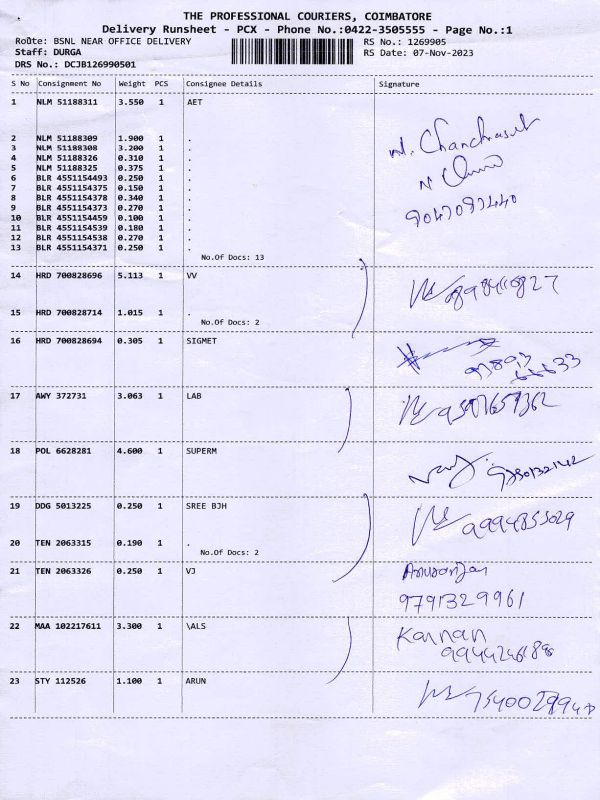 THE PROFESSIONAL COURIERS, COIMBATORE
Delivery Runsheet - PCX - Phone No.:0422-3505555 - Page No.:1
Route: BSNL NEAR OFFICE DELIVERY RS No.: 1269905
Staff: DURGA RS Date: 07-Nov-2023
DRS No.: DCJB126990501
S No Consignment No Weight PCS Consignee Details Signature
1 NLM 51188311 3.550 1 AET
2 NLM 51188309 1.900 1 .
3 NLM 51188308 3.200 1 .
4 NLM 51188326 0.310 1 .
5 NLM 51188325 0.375 1 .
6 BLR 4551154493 0.250 1 .
7 BLR 4551154375 0.150 1 .
8 BLR 4551154378 0.340 1 .
9 BLR 4551154373 0.270 1 .
10 BLR 4551154459 0.100 1 .
11 BLR 4551154539 0.180 1 .
12 BLR 4551154538 0.270 1 .
13 BLR 4551154371 0.250 1 .
No.Of Docs: 13
14 HRD 700828696 5.113 1 VV
15 HRD 700828714 1.015 1 .
No.Of Docs: 2
16 HRD 700828694 0.305 1 SIGMET
17 AWY 372731 3.063 1 LAB
18 POL 6628281 4.600 1 SUPERM
19 DDG 5013225 0.250 1 SREE BJH
9994855029
20 TEN 2063315 0.190 1 .
No.Of Docs: 2
21 TEN 2063326 0.250 1 VJ
9791329961
22 MAA 102217611 3.300 1 \ALS Kannan
23 STY 112526 1.100 1 ARUN